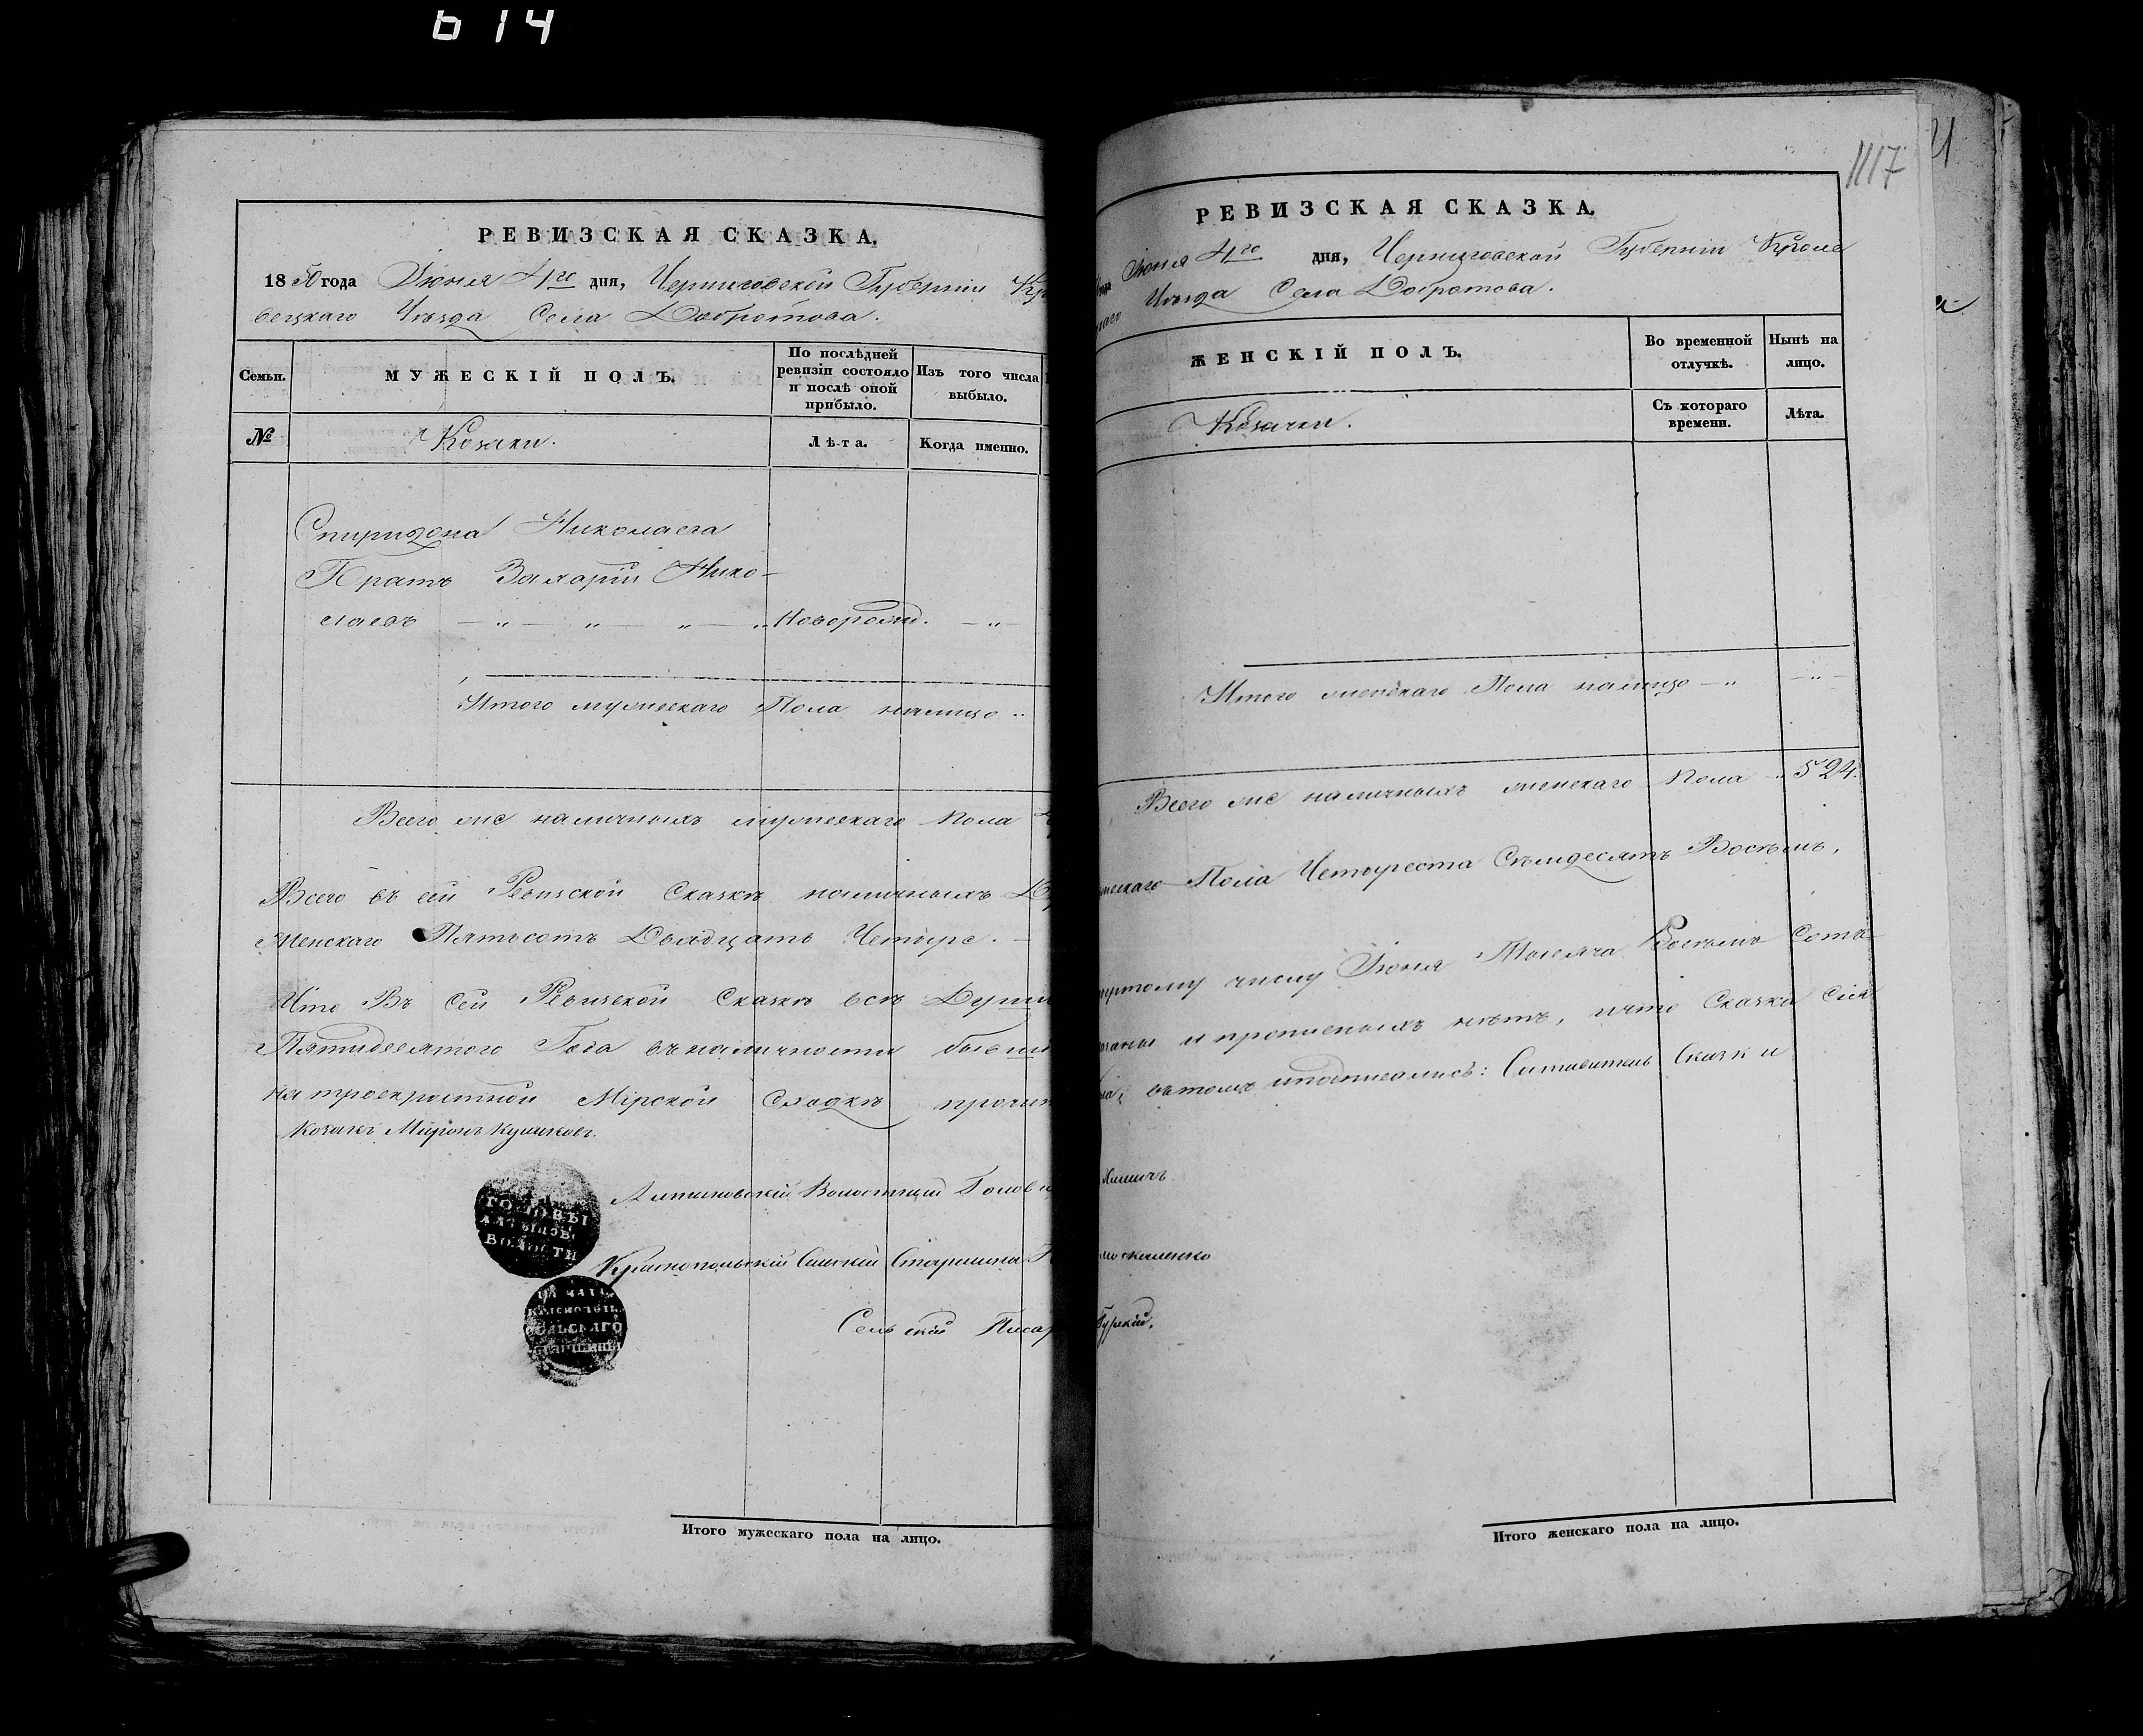 614
РЕВИЗСКАЯ СКАЗКА.
1850 года Июня 4го дня, Черниговской Губернiи Кр
вецкаго Уѣзда Села Добротова.
Семьи.
МУЖЕСКIЙ ПОЛЪ.
По послѣдней ревизiи состояло и послѣ оной прибыло.
Изъ того числа выбыло.
№
Козаки.
Лѣта.
Когда именно.
Спиридона Николаева
Братъ Захарiй Нико-
лаевъ — „ — „ — „ — „ Новорожд. — „ —
Итого мужескаго Пола налицо „
Всего же наличныхъ мужескаго пола
Всего въ сей Ревизской Сказкѣ наличныхъ
Женскаго Пятьсотъ Двадцать Четыре. —
Что Въ Сей Ревизской Сказкѣ всѣ Души
Пятидесятого Года въ наличности
на троекратной Мiрской Сходкѣ
Козакъ Миронъ
ГОЛОВЫ
АЛТЫНОВ.
ВОЛОСТИ
Алтыновскiй Волостный Голова
Краснопольскiй Сельскiй Старшина
СЕЛЬСКАГО
СТАРШИНЫ
Сельскiй Писар
Итого мужескаго пола на лицо.
1117
РЕВИЗСКАЯ СКАЗКА.
года Июня 4го дня, Черниговской Губернiи Кроле
цкаго Уѣзда Села Добротова.
ЖЕНСКIЙ ПОЛЪ.
Во временной отлучкѣ.
Нынѣ на лицо.
Козачки.
Съ котораго времени.
Лѣта.
Итого женскаго Пола налицо — „ — „ —
Всего же наличныхъ женскаго пола „ 524.
Пола Четыреста Съмдесятъ Восѣмъ,
числу Июня Мѣсяца Восѣмъ Сотъ
и прописныхъ нѣтъ, и что Сказка Сiя
въ томъ и подписались: Составитель Сказки
Москаленко
Гурскiй.
Итого женскаго пола на лицо.